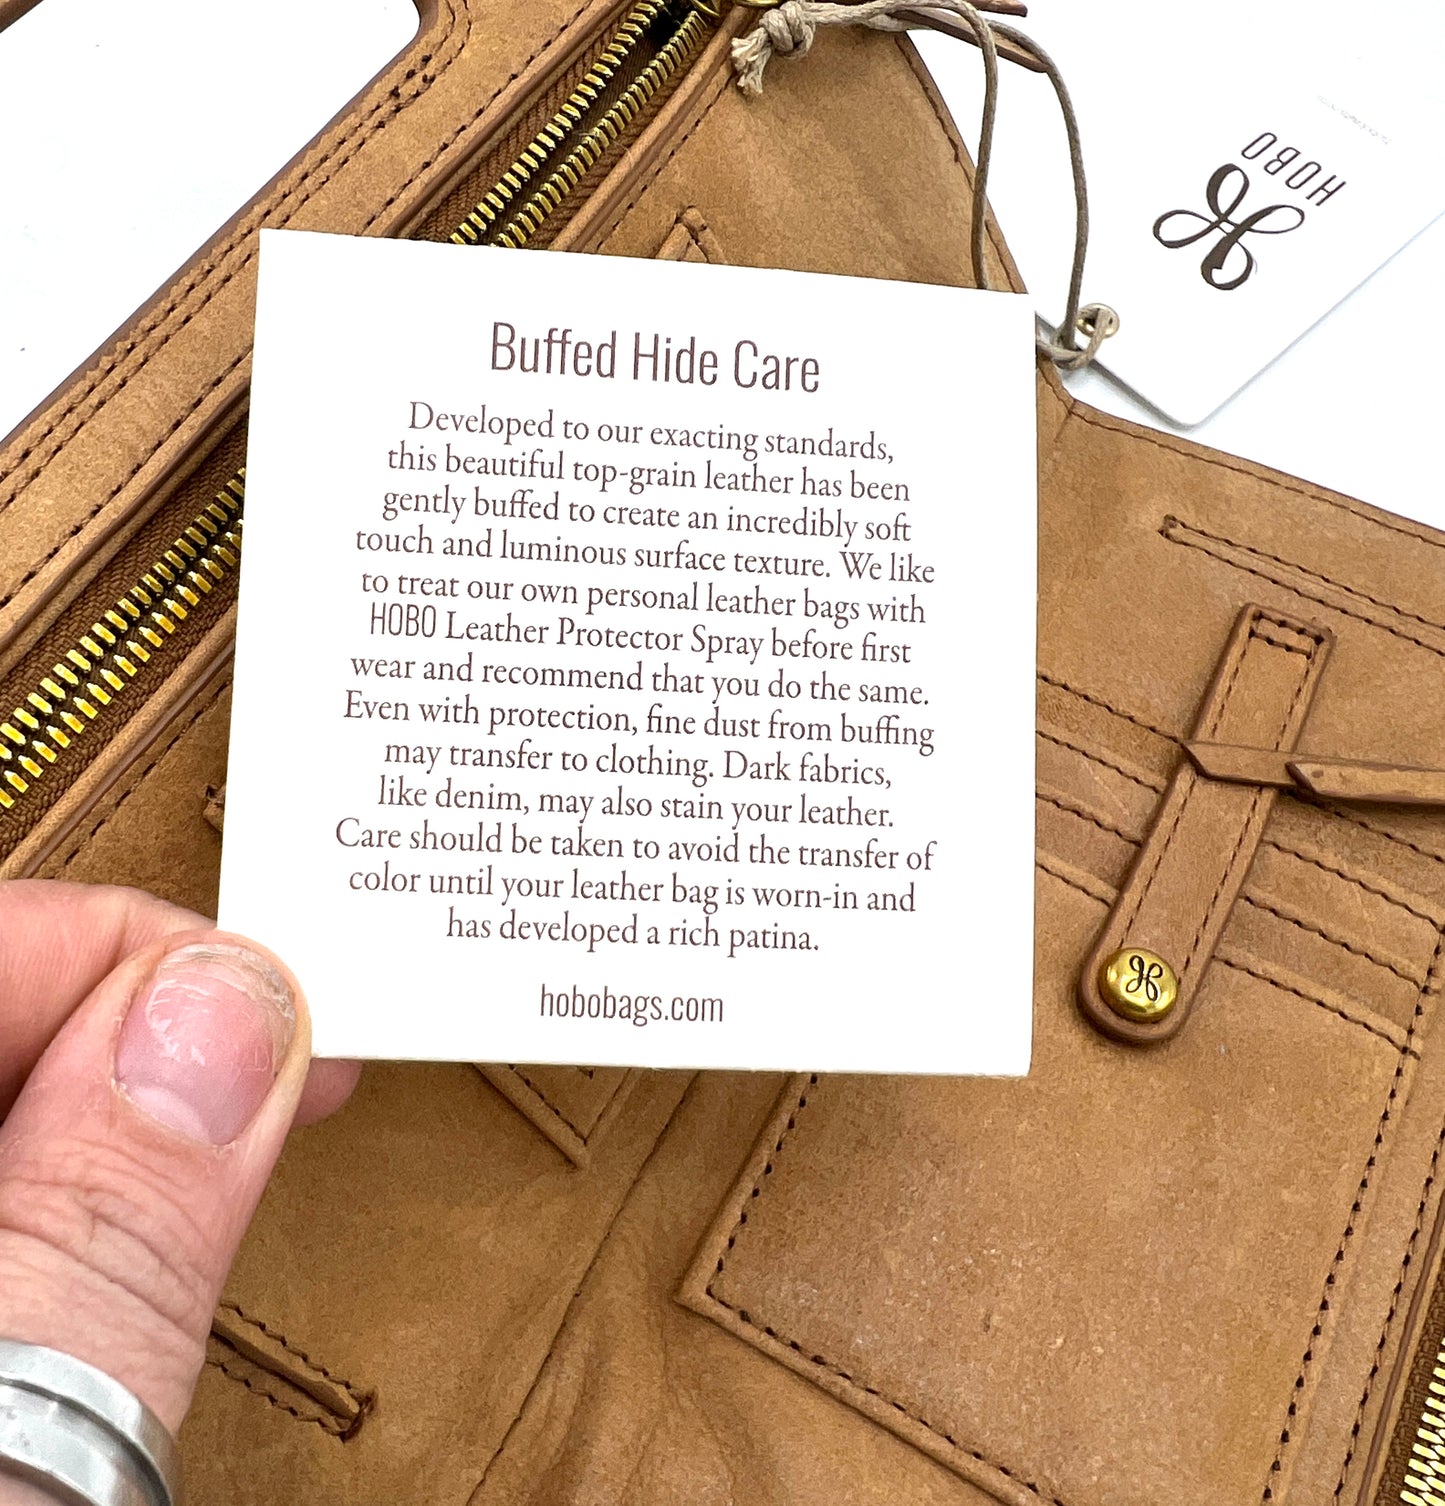 HOBO
Buffed Hide Care
Developed to our exacting standards,
this beautiful top-grain leather has been
gently buffed to create an incredibly soft
touch and luminous surface texture. We like
to treat our own personal leather bags with
HOBO Leather Protector Spray before first
wear and recommend that you do the same.
Even with protection, fine dust from buffing
may transfer to clothing. Dark fabrics,
like denim, may also stain your leather.
Care should be taken to avoid the transfer of
color until your leather bag is worn-in and
has developed a rich patina.
hobobags.com